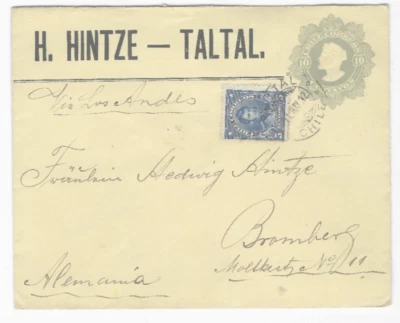 H. HINTZE — TALTAL.
10 10
Via Los Andes
5 5
CHILE
Fräulein Hedwig Hintze
Bromberg
Moltkestr No 11
Alemania